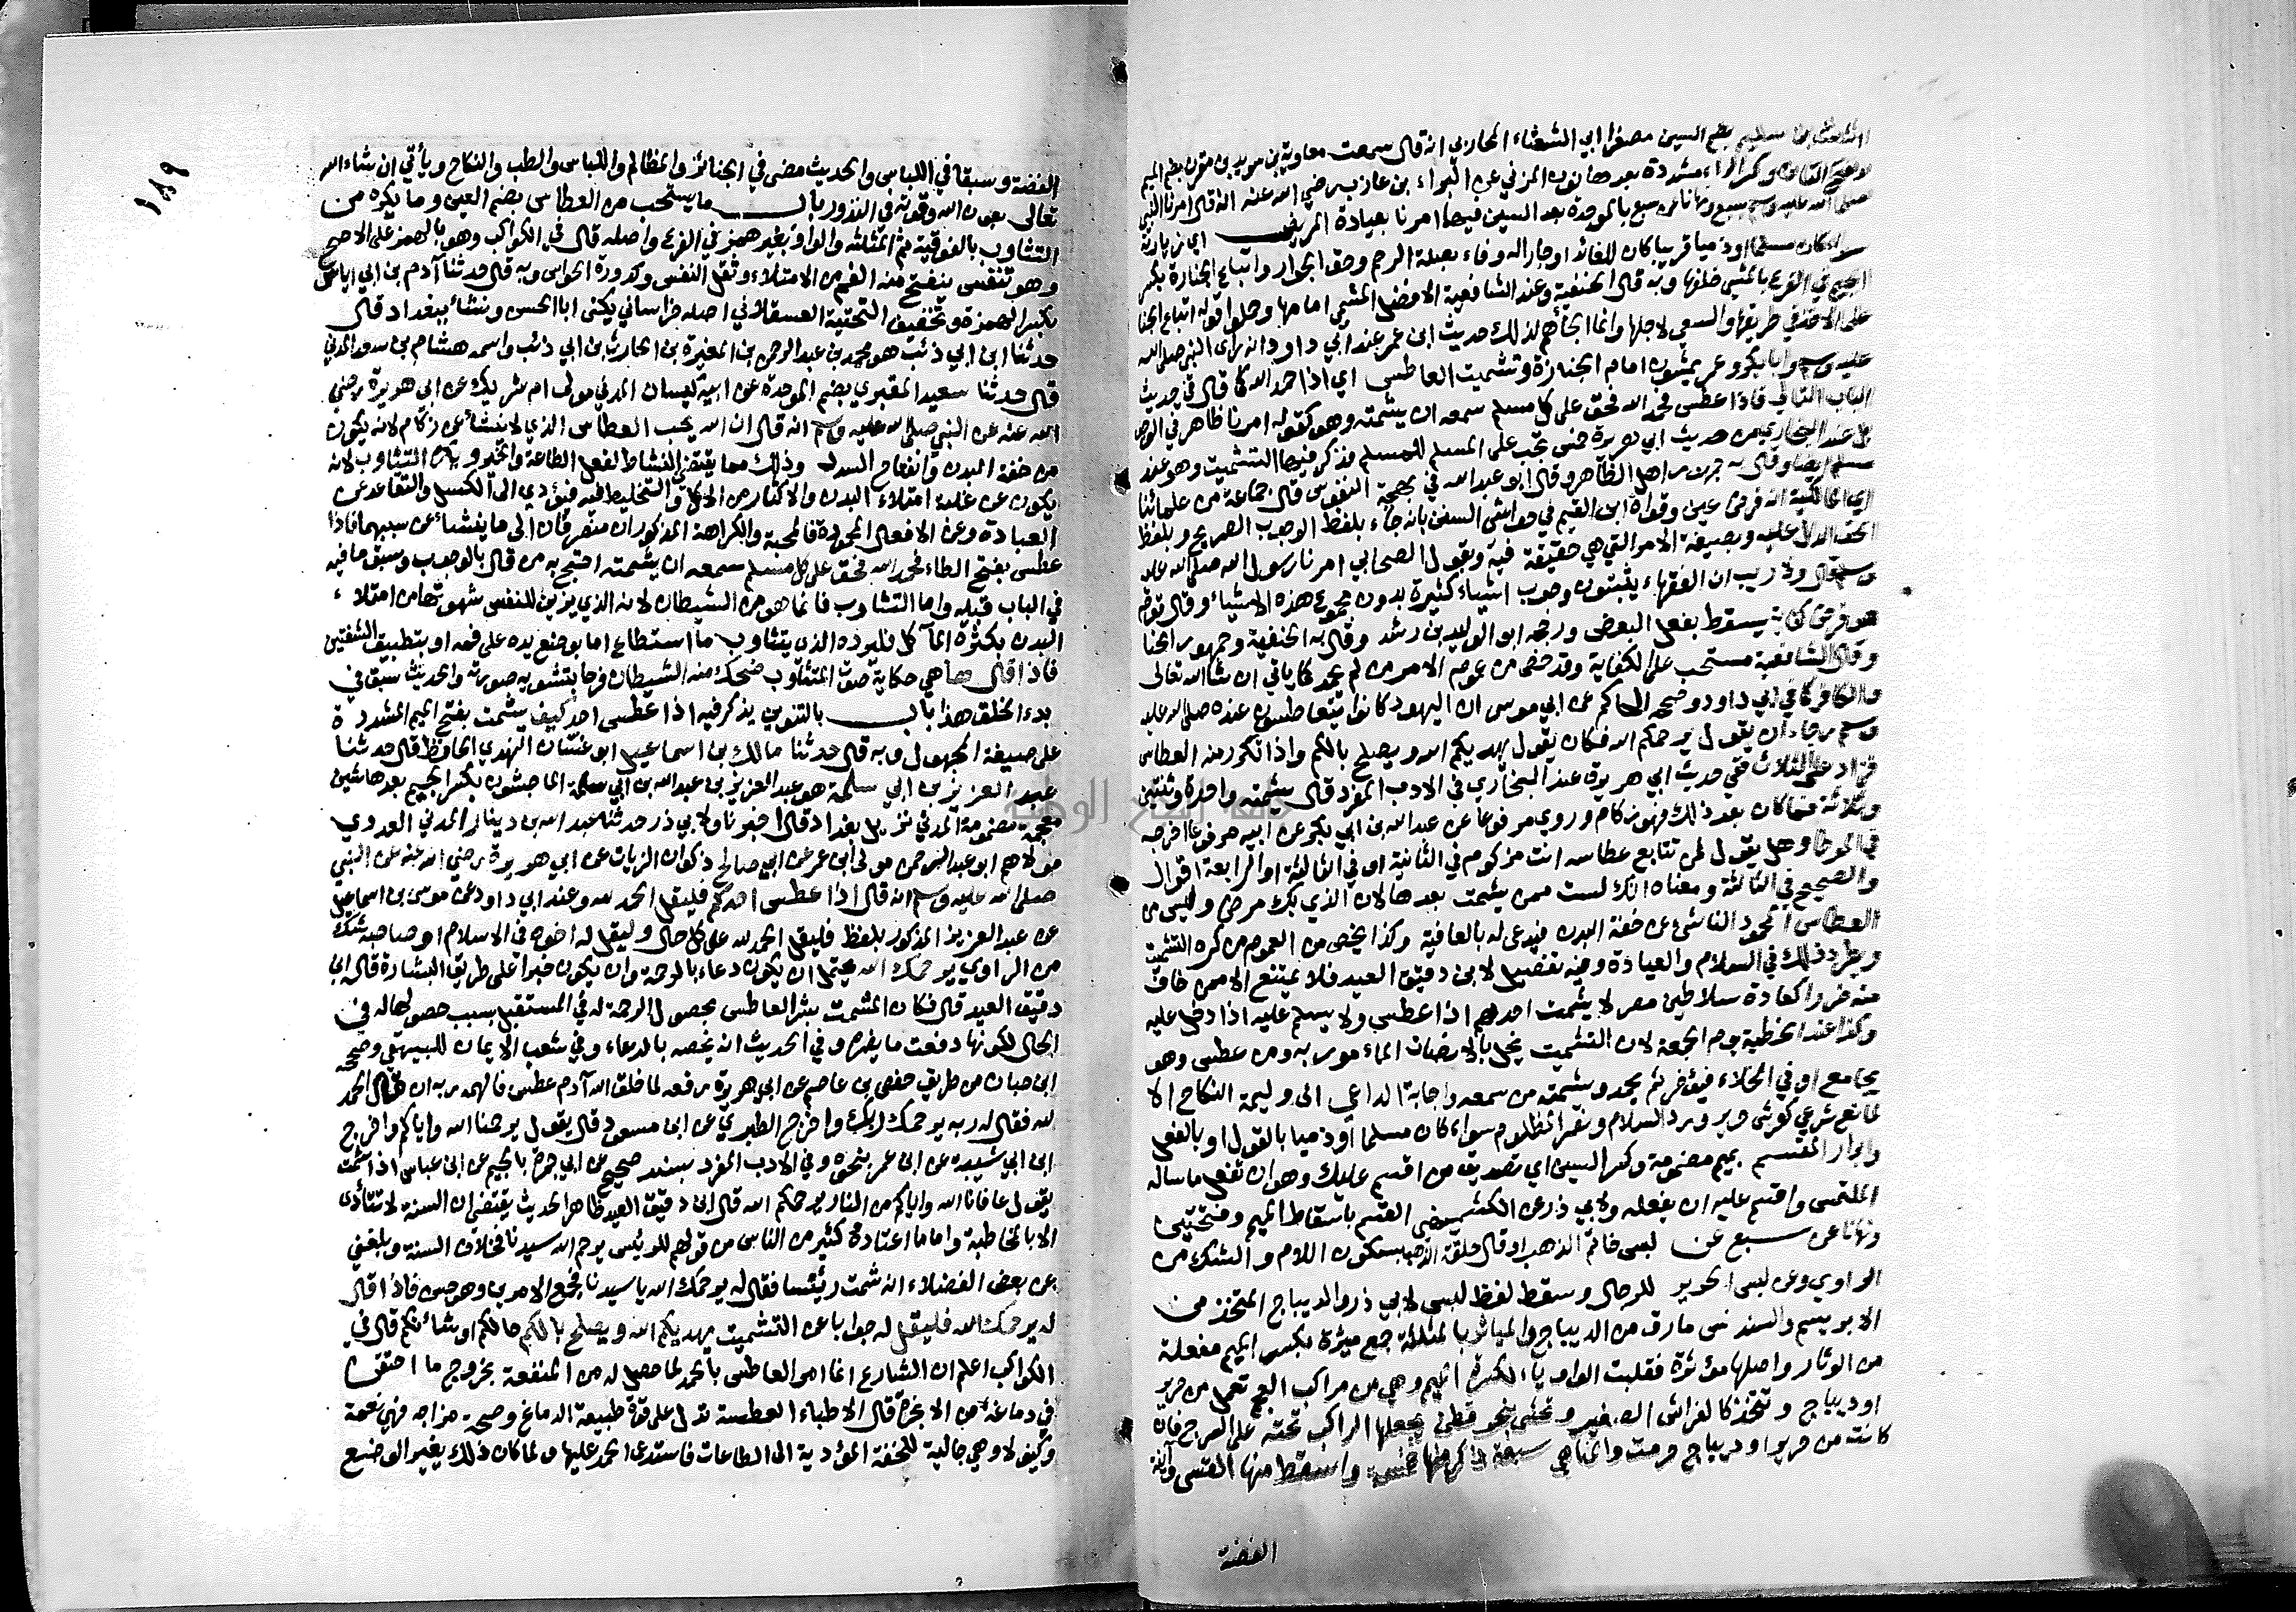 بن سليم بضم السين مصغرا ابي الشعثاء المحاربي انه قال سمعت معاوية بن سويد بن مقرن بضم الميم
وفتح القاف وكسر الراء مشددة بعدها نون المزني عن البراء بن عازب رضي الله عنه انه قال امرنا النبي
صلى الله عليه وسلم بسبع ونهانا عن سبع بالموحدة بعد السين فيهما امرنا بعيادة المريض اي زيارته
كان مسلما او ذميا قريبا كان للعائد او جارا له وفاء بصلة الرحم وحق الجوار واتباع الجنازة بكسر
الجيم في الفرع بالمشي خلفها وبه قال الحنفية وعند الشافعية الافضل المشي امامها وحملوا قوله اتباع الجنا
على الاخذ في طريقها والسعي لاجلها وانما الجأهم لذلك حديث ابن عمر عند ابي داود انه راى النبي صلى الله
عليه وسلم وابا بكر وعمر يمشون امام الجنازة وتشميت العاطس اي اذا حمد الله كما قال في حديث
الباب التالي فاذا عطس فحمد الله فحق على كل مسلم سمعه ان يشمته وهو كقوله امرنا ظاهر في الوجوب
بل عند البخاري من حديث ابي هريرة خمس تجب على المسلم للمسلم فذكر فيها التشميت وهو عند
مسلم ايضا وقال به جمهور اهل الظاهر وقال ابو عبد الله في بهجة النفوس قال جماعة من علمائنا
اي المالكية انه فرض عين وقواه ابن القيم في حواشي السنن بانه جاء بلفظ الوجوب الصريح وبلفظ
الحق الدال عليه وبصيغة الامر التي هي حقيقة فيه وبقول الصحابي امرنا رسول الله صلى الله عليه
وسلم قال ولا ريب ان الفقهاء يثبتون وجوب اشياء كثيرة بدون مجموع هذه الاشياء وقال قوم
هو فرض كفاية يسقط بفعل البعض ورجحه ابو الوليد بن رشد وقال به الحنفية وجمهور الحنا
وقال الشافعية مستحب على الكفاية وقد خص من عموم الامر من لم يحمد كما ياتي ان شا الله تعالى
والكافر كما في ابي داود وصححه الحاكم عن ابي موسى ان اليهود كانوا يتعاطسون عنده صلى الله عليه
وسلم رجاء ان يقول يرحمكم الله فكان يقول يهديكم الله ويصلح بالكم واذا تكرر منه العطاس
فزاد على الثلاث ففي حديث ابي هريرة عند البخاري في الادب المفرد قال يشمته واحدة وثنتين
وثلاثة فما كان بعد ذلك فهو زكام وروي مرفوعا عن عبد الله بن ابي بكر عن ابيه مرفوعا اخرجه
في الموطا وهل يقول لمن تتابع عطاسه انت مزكوم في الثانية او في الثالثة او الرابعة اقوال
والصحيح في الثالثة ومعناه انك لست ممن يشمت بعدها لان الذي بك مرض وليس من
العطاس المحمود الناشئ عن خفة البدن فيدعى له بالعافية وكذا يخص من العموم من كره التشميت
ويطرد ذلك في السلام والعيادة وفيه تفصيل لابن دقيق العيد فلا يمتنع الا ممن خاف
منه ضررا كعادة سلاطين مصر لا يشمت احدهم اذا عطس ولا يسلم عليه اذا دخل عليه
وكذا عند الخطبة يوم الجمعة لان التشميت يخل بالانصات المامور به ومن عطس وهو
يجامع او في الخلاء فيؤخر ثم يحمد ويشمته من سمعه واجابة الداعي الى وليمة النكاح الا
لمانع شرعي كفرش حرير ورد السلام ونصر المظلوم سواء كان مسلما او ذميا بالقول او بالفعل
وابرار المقسم بميم مضمومة وكسر السين اي تصديق من اقسم عليك وهو ان تفعل ما ساله
الملتمس واقسم عليه ان يفعله ولابي ذر عن الكشميهني القسم باسقاط الميم وفتحتين
ونهانا عن سبع عن لبس خاتم الذهب او قال حلقة الذهب بسكون اللام والشك من
الراوي وعن لبس الحرير للرجال وسقط لفظ لبس لابي ذر والديباج المتخذ من
الابريسم والسندس مارق من الديباج والمياثر بالمثلثة جمع ميثرة بكسر الميم مفعلة
من الوثار واصلها موثرة فقلبت الواو ياء لكسرة الميم وهي من مراكب العجم تعمل من حرير
او ديباج وتتخذ كالفراش الصغير وتحشى بنحو قطن يجعلها الراكب تحته على السرج فان
كانت من حرير او ديباج حرمت والمناهي سبعة ذكر منها خمسة واسقط منها القسي وآنية
الفضة
١٨٩
الفضة وسبقا في اللباس والحديث مضى في الجنائز والمظالم واللباس والطب والنكاح ويأتي ان شاء الله
تعالى بعون الله وقوته في النذور باب ما يستحب من العطاس بضم العين وما يكره من
التثاوب بالفوقية ثم المثلثة والواو بغير همز في الفرع واصله قال في الكواكب وهو بالهمز على الاصح
وهو تنفس ينفتح منه الفم من الامتلاء وثقل النفس وكدورة الحواس وبه قال حدثنا آدم بن ابي اياس
بكسر الهمزة وتخفيف التحتية العسقلاني اصله خراساني يكنى ابا الحسن ونشأ ببغداد قال
حدثنا ابن ابي ذئب هو محمد بن عبد الرحمن بن المغيرة بن الحارث بن ابي ذئب واسمه هشام بن سعد المدني
قال حدثنا سعيد المقبري بضم الموحدة عن ابيه كيسان المدني مولى ام شريك عن ابي هريرة رضي
الله عنه عن النبي صلى الله عليه وسلم انه قال ان الله يحب العطاس الذي لا ينشأ عن زكام لانه يكون
من خفة البدن وانفتاح السدد وذلك مما يقتضي النشاط لفعل الطاعة والخير ويكره التثاوب لانه
يكون عن غلبة امتلاء البدن والاكثار من الاكل والتخليط فيه فيؤدي الى الكسل والتقاعد عن
العبادة وعن الافعال المحمودة فالمحبة والكراهة المذكوران منصرفان الى ما ينشأ عن سببهما فاذا
عطس بفتح الطاء فحمد الله فحق على كل مسلم سمعه ان يشمته احتج به من قال بالوجوب وسبق ما فيه
في الباب قبله واما التثاوب فانما هو من الشيطان لانه الذي يزين للنفس شهوتها من امتلاء
البدن بكثرة المآكل فليرده الذي يتثاوب ما استطاع اما بوضع يده على فمه او بتطبيق الشفتين
فاذا قال ها هي حكاية صوت المتثاوب ضحك منه الشيطان فرحا بتشويه صورته والحديث سبق في
بدء الخلق هذا باب بالتنوين يذكر فيه اذا عطس احد كيف يشمت بفتح الميم المشددة
على صيغة المجهول وبه قال حدثنا مالك بن اسماعيل ابو غسان النهدي الحافظ قال حدثنا
عبد العزيز بن ابي سلمة هو عبد العزيز بن عبد الله بن ابي سلمة الماجشون بكسر الجيم بعدها شين
معجمة مضمومة المدني نزيل بغداد قال اخبرنا ولابي ذر حدثنا عبد الله بن دينار المدني العدوي
مولاهم ابو عبد الرحمن مولى ابن عمر عن ابي صالح ذكوان الزيات عن ابي هريرة رضي الله عنه عن النبي
صلى الله عليه وسلم انه قال اذا عطس احدكم فليقل الحمد لله وعند ابي داود عن موسى بن اسماعيل
عن عبد العزيز المذكور بلفظ فليقل الحمد لله على كل حال وليقل له اخوه في الاسلام او صاحبه شك
من الراوي يرحمك الله يحتمل ان يكون دعاء بالرحمة وان يكون خبرا على طريق البشارة قال ابن
دقيق العيد قال فكان المشمت بشر العاطس بحصول الرحمة له في المستقبل بسبب حصولها له في
الحال لكونها دفعت ما يضره وفي الحديث انه يخصه بالدعاء وفي شعب الايمان للبيهقي وصححه
ابن حبان من طريق حفص بن عاصم عن ابي هريرة رفعه لما خلق الله آدم عطس فالهمه ربه ان قال الحمد
لله فقال له ربه يرحمك ربك واخرج الطبري عن ابن مسعود قال يقول يرحمنا الله واياكم واخرج
ابن ابي شيبة عن ابن عمر بنحوه وفي الادب المفرد بسند صحيح عن ابي جمرة بالجيم عن ابن عباس اذا شمت
يقول عافانا الله واياكم من النار يرحمكم الله قال ابن دقيق العيد ظاهر الحديث يقتضي ان السنة لا تتأدى
الا بالمخاطبة واما ما اعتاده كثير من الناس من قولهم للرئيس يرحم الله سيدنا فخلاف السنة وبلغني
عن بعض الفضلاء انه شمت رئيسا فقال له يرحمك الله يا سيدنا فجمع الامرين وهو حسن فاذا قال
له يرحمك الله فليقل له جوابا عن التشميت يهديكم الله ويصلح بالكم حالكم او شأنكم قال في
الكواكب اعلم ان الشارع انما امر العاطس بالحمد لما حصل له من المنفعة بخروج ما احتقن
في دماغه من الابخرة قال الاطباء العطسة تدل على قوة طبيعة الدماغ وصحة مزاجه فهي نعمة
وكيف لا وهي جالبة للخفة المؤدية الى الطاعات فاستدعى الحمد عليها ولما كان ذلك يغير الوضع